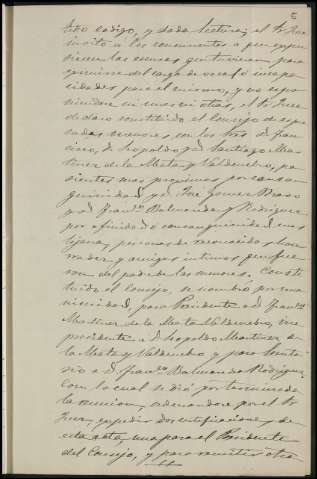 dicho codigo, y dada lectura, el Sr. Juez
invitó a los concurrentes a que expu-
sieran las causas que tuvieran para
eximirse del cargo de vocal ó incapa-
cidades para el mismo, y no expo-
niendose ni unas ni otras, el Sr. Juez
declaró constituido el consejo de
menores con los tres D. Fran-
cisco, D. Leopoldo y D. Santiago Mar-
tinez de la Mata y Valdenebro, pa-
rientes mas proximos por consan-
guinidad, y D. José Gomez Bravo
y D. Franco. Balmonda y Rodriguez
por afinidad ó consanguinidad mas
lejana, personas de reconocida hon-
radez y amigos intimos que fue-
ron del padre de los menores. Consti-
tuido el consejo, se nombró por una-
nimidad, para Presidente a D. Franco.
Martinez de la Mata Valdenebro, vice
presidente a D. Leopoldo Martinez de
la Mata y Valdenebro y para Secreta-
rio a D. Franco. Balmonda Rodriguez
Con lo cual se dió por terminada
la reunion, ordenandose por el Sr.
Juez, expedir dos certificaciones de
esta acta, una para el Presidente
del Consejo, y para remitir otra